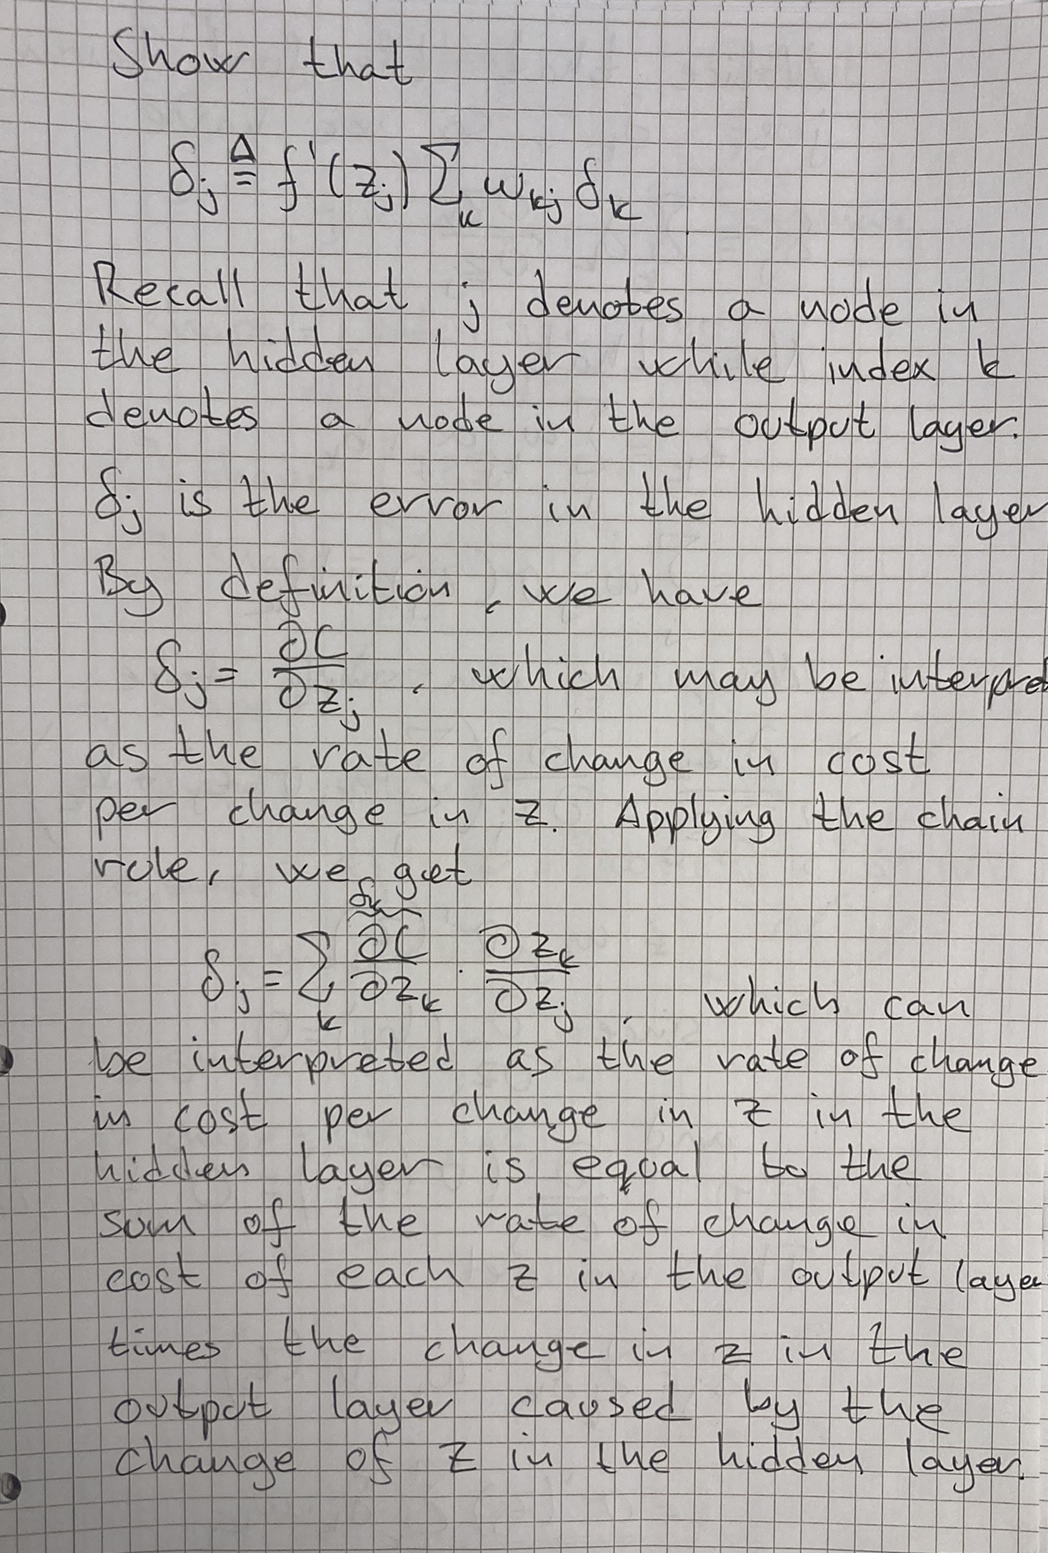 Show that
δ_j ≜ f'(z_j) Σ_k w_kj δ_k
Recall that j denotes a node in
the hidden layer while index k
denotes a node in the output layer.
δ_j is the error in the hidden layer
By definition, we have
δ_j = ∂C/∂z_j , which may be interpret
as the rate of change in cost
per change in z. Applying the chain
rule, we get
δ_k
δ_j = Σ_k ∂C/∂z_k · ∂z_k/∂z_j , which can
be interpreted as the rate of change
in cost per change in z in the
hidden layer is equal to the
sum of the rate of change in
cost of each z in the output layer
times the change in z in the
output layer caused by the
change of z in the hidden layer.